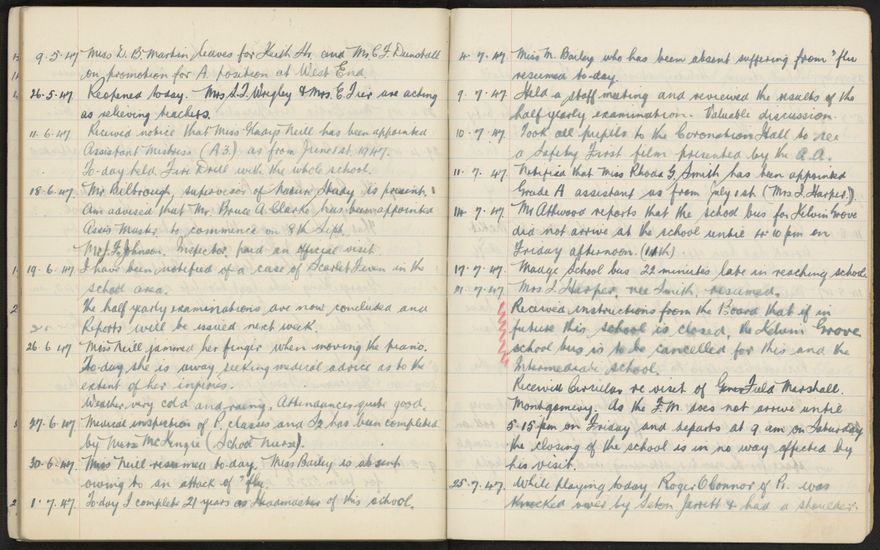 9.5.47 Miss E. B. Martin leaves for Keith St. and Mr C. F. Dunstall
on promotion for A position at West End.
26.5.47 Reopened today. Mrs L. I. Wrigley & Mrs. E. Freir are acting
as relieving teachers.
11.6.47 Received notice that Miss Gladys Neill has been appointed
Assistant Mistress (A3.) as from June 1st 1947.
To-day held Fire Drill with the whole school.
18.6.47 Mr Belbrough, supervisor of Nature Study is present.
Am advised that Mr. Bruce A. Clarke has been appointed
Assis Master to commence on 8th Sept.
Mr J. F. Johnson, Inspector, paid an official visit
19.6.47 I have been notified of a case of Scarlet Fever in the
school area.
The half yearly examinations are now concluded and
Reports will be issued next week.
26.6.47 Miss Neill jammed her finger when moving the piano.
To-day she is away seeking medical advice as to the
extent of her injuries.
Weather, very cold and raining. Attendances quite good.
27.6.47 Medical inspection of P. classes and S2 has been completed
by Nurse McKenzie (School Nurse).
30.6.47 Miss Neill resumed to-day. Miss Bailey is absent
owing to an attack of "flu.
1.7.47 To-day I complete 21 years as Headmaster of this school.
4.7.47 Miss M. Bailey who has been absent suffering from "flu
resumed to-day.
9.7.47 Held a staff meeting and reviewed the results of the
half yearly examination. Valuable discussion.
10.7.47 Took all pupils to the Coronation Hall to see
a Safety First film presented by the A.A.
11.7.47 Notified that Miss Rhoda G. Smith has been appointed
Grade A assistant as from July 1st (Mrs I. Harper)
14.7.47 Mr Attwood reports that the school bus for Kelvin Grove
did not arrive at the school until 4.10 pm on
Friday afternoon. (11th)
17.7.47 Madge School bus 22 minutes late in reaching school
21.7.47 Mrs I. Harper, nee Smith, resumed.
Received instructions from the Board that if in
future this school is closed, the Kelvin Grove
school bus is to be cancelled for this and the
Intermediate school.
Received Circular re visit of Field Marshall
Montgomery. As the F.M. does not arrive until
5.15 pm on Friday and departs at 9 am on Saturday
the closing of the school is in no way affected by
his visit.
25.7.47 While playing to-day Roger O'Connor of P. was
knocked over by Seton Jarrett & had a shoulder